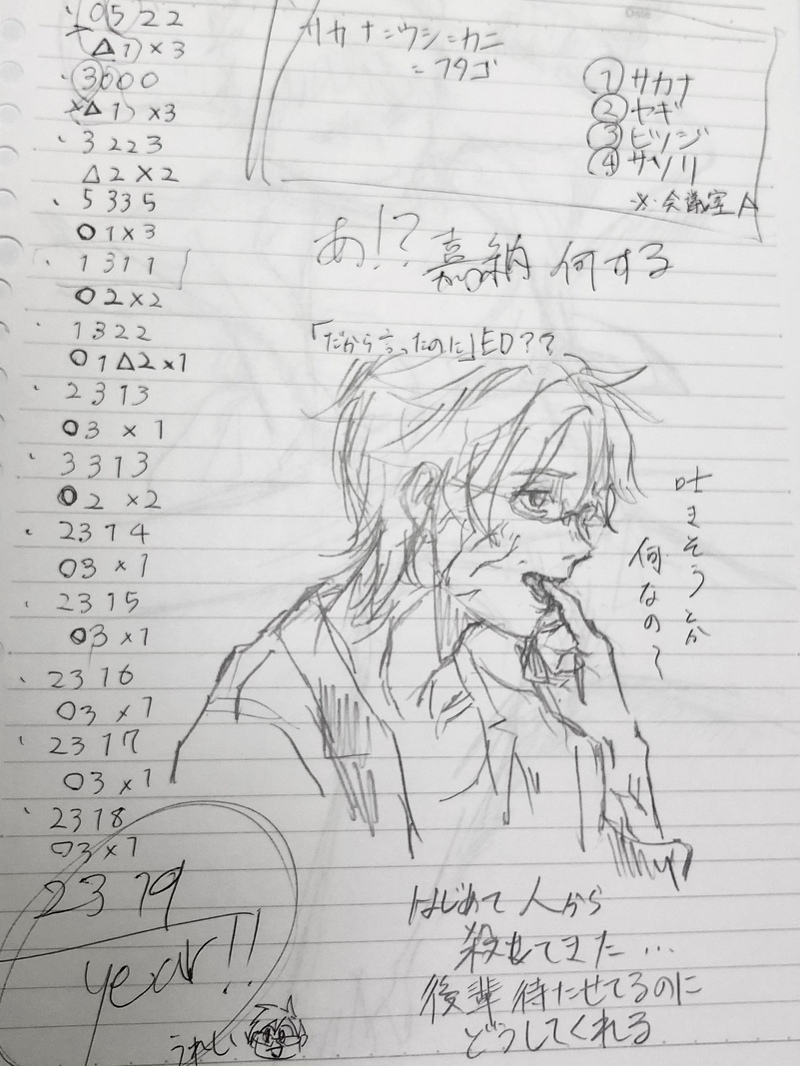 ・0522
△1×3
・3000
×△1 ×3
・3223
△2×2
・5335
○1×3
・1311
○2×2
・1322
○1△2×1
・2313
○3 ×1
・3313
○2 ×2
・2314
○3 ×1
・2315
○3 ×1
・2316
○3 ×1
・2317
○3 ×1
・2318
○3×1
2319
year!!
うれしい
サカナ=ウシ=カニ
=フタゴ
①サカナ
②ヤギ
③ヒツジ
④サソリ
※会議室A
あ!?嘉納 何する
「だから言ったのに」ED??
吐きそうとか
何なの〜
はじめて人から
殺せてきた…
後輩待たせてるのに
どうしてくれる